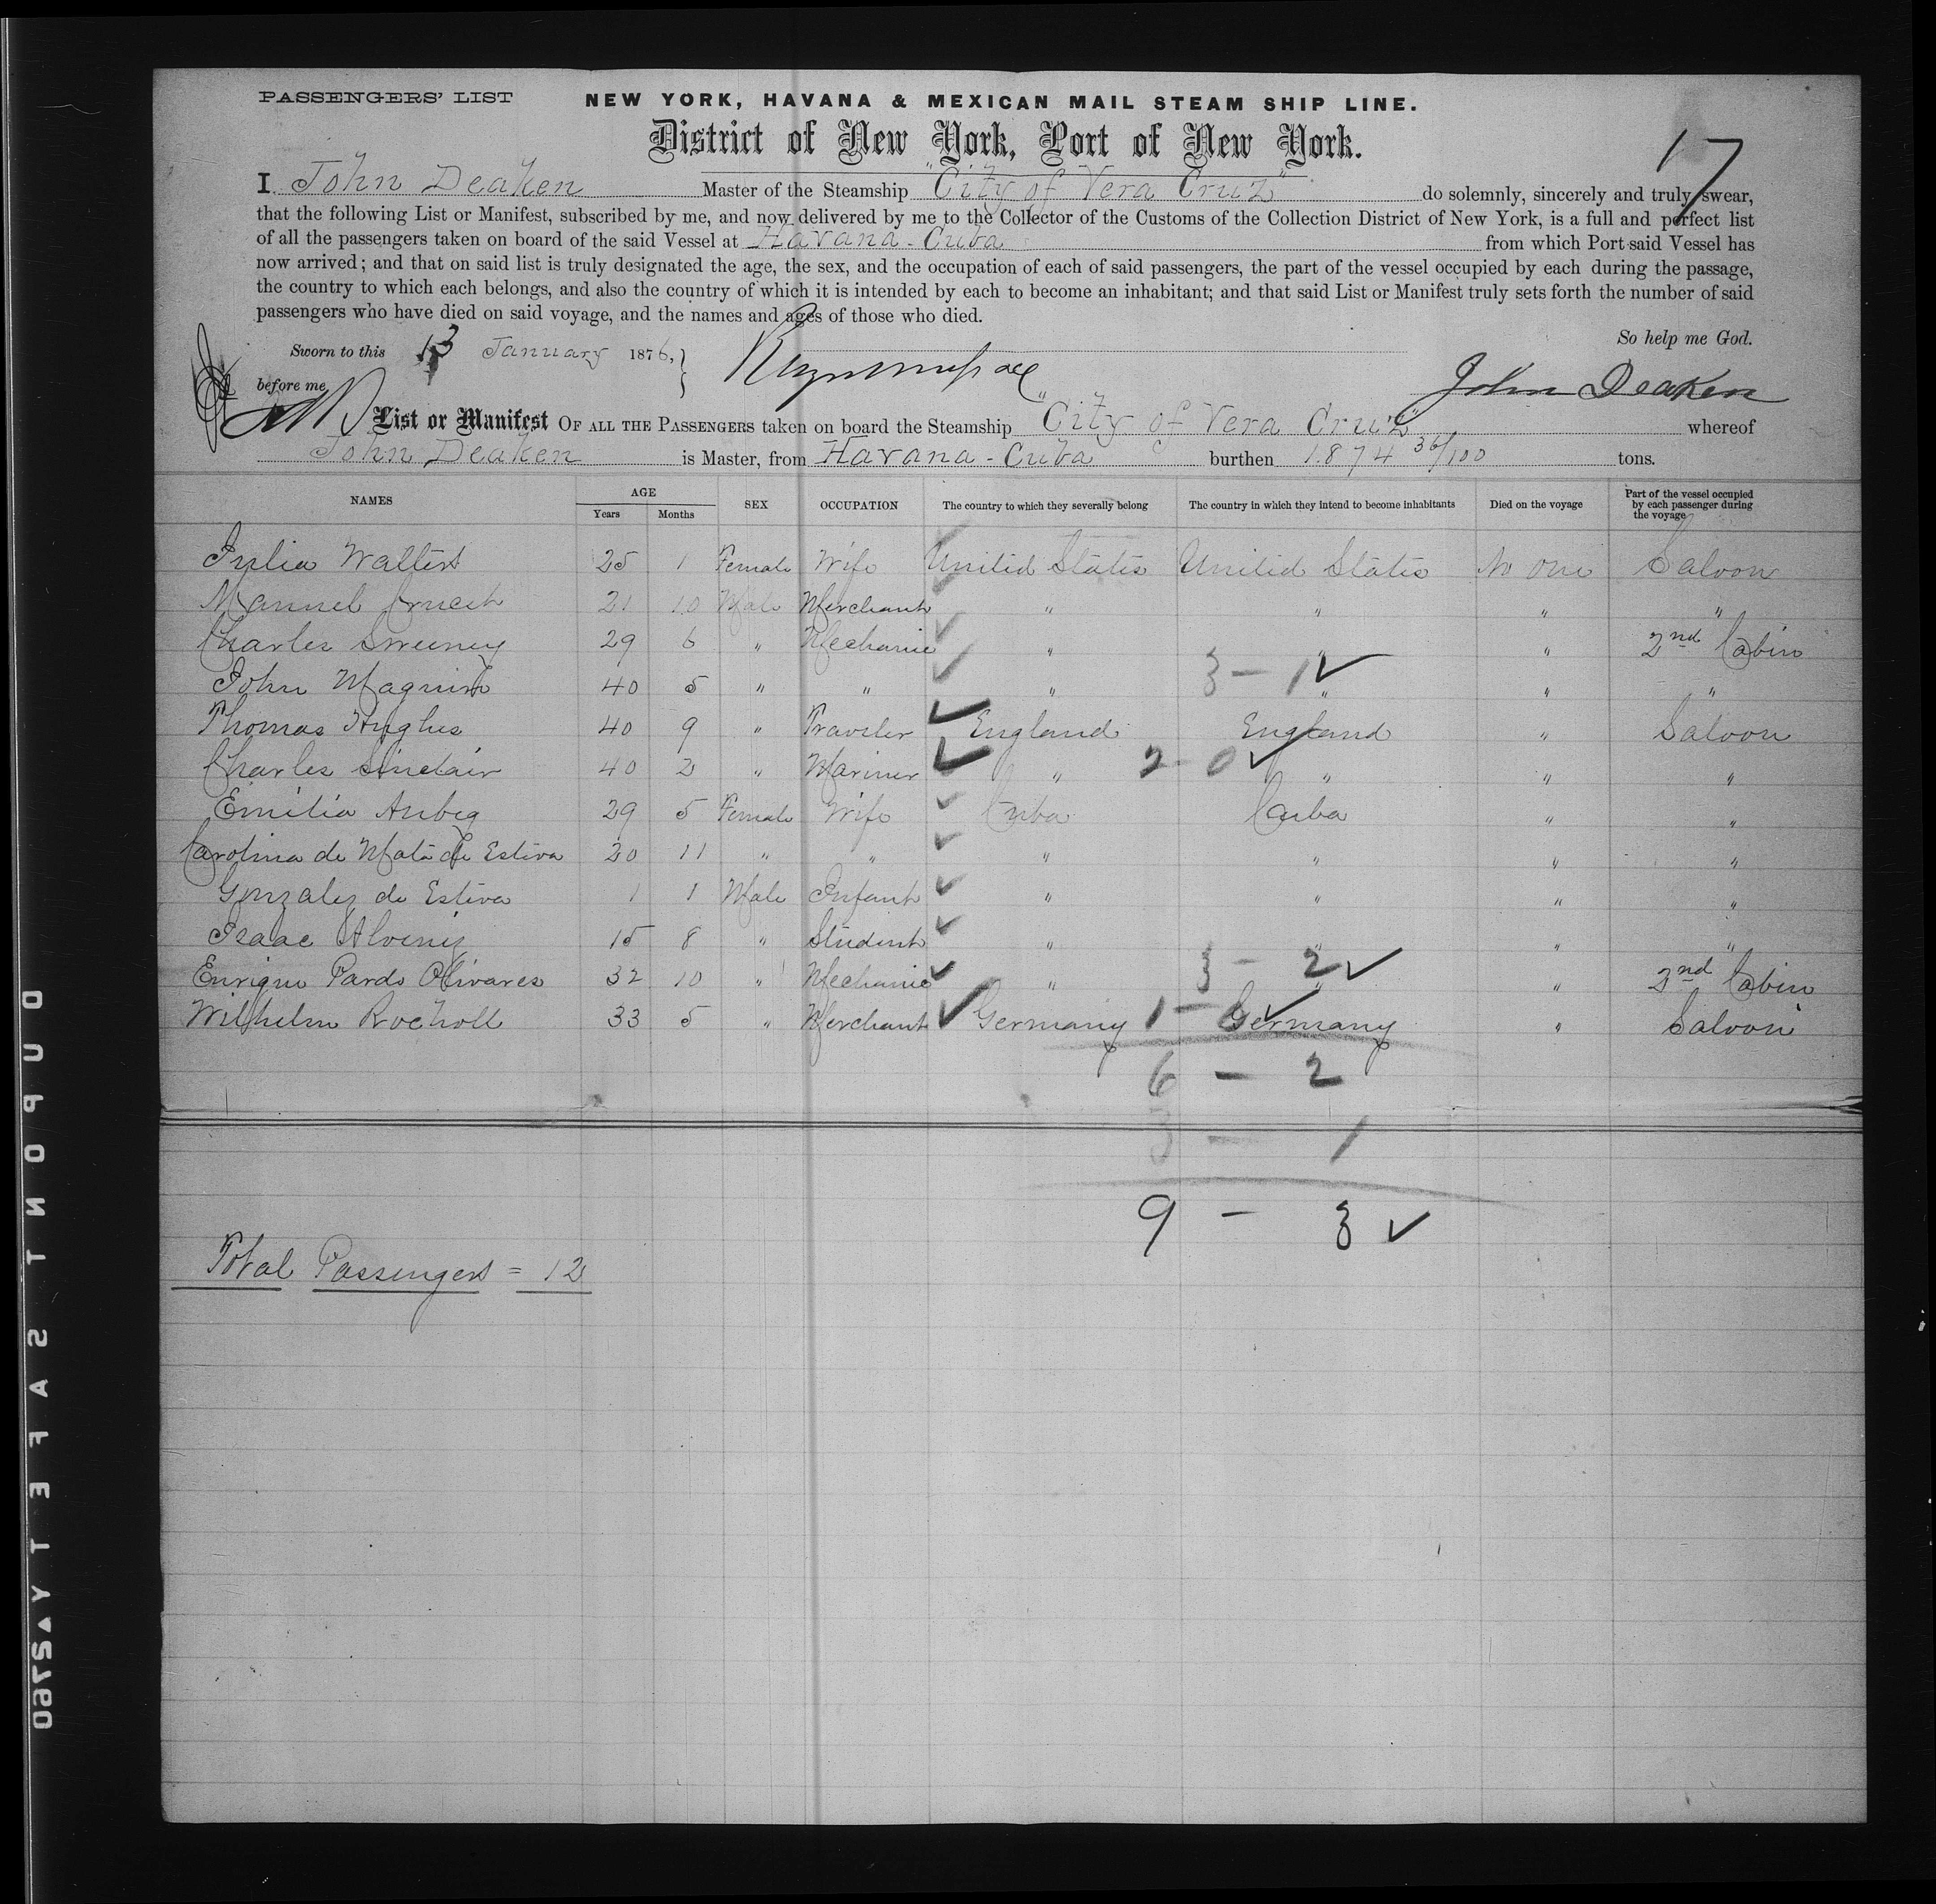 PASSENGERS' LIST
NEW YORK, HAVANA & MEXICAN MAIL STEAM SHIP LINE.
17
District of New York, Port of New York.
I John Deaken Master of the Steamship "City of Vera Cruz" do solemnly, sincerely and truly swear,
that the following List or Manifest, subscribed by me, and now delivered by me to the Collector of the Customs of the Collection District of New York, is a full and perfect list
of all the passengers taken on board of the said Vessel at Havana - Cuba from which Port said Vessel has
now arrived; and that on said list is truly designated the age, the sex, and the occupation of each of said passengers, the part of the vessel occupied by each during the passage,
the country to which each belongs, and also the country of which it is intended by each to become an inhabitant; and that said List or Manifest truly sets forth the number of said
passengers who have died on said voyage, and the names and ages of those who died.
So help me God.
Sworn to this 13 January 1876,
before me
John Deaken
List or Manifest OF ALL THE PASSENGERS taken on board the Steamship "City of Vera Cruz" whereof
John Deaken is Master, from Havana - Cuba burthen 1874 36/100 tons.
NAMES AGE Years Months SEX OCCUPATION The country to which they severally belong The country in which they intend to become inhabitants Died on the voyage Part of the vessel occupied by each passenger during the voyage
Julia Walters 25 1 Female Wife United States United States No One Saloon
Manuel 21 10 Male Merchant " " " "
Charles Sweeney 29 6 " Mechanic " " " 2nd Cabin
John 40 5 " " " " " "
3 - 1 ✓
Thomas Hughes 40 9 " Traveler England England " Saloon
Charles Sinclair 40 2 " Mariner " " " "
2 - 0 ✓
Emilia 29 5 Female Wife Cuba Cuba " "
Carolina de Mata de Estiva 20 11 " " " " " "
Gonzalez de Estiva 1 1 Male Infant " " " "
Isaac 15 8 " Student " " " "
3 - 2 ✓
Enrique Pardo Olivares 32 10 " Mechanic " " " 2nd Cabin
Wilhelm Rocholl 33 5 " Merchant Germany Germany " Saloon
6 - 2
3 - 1
9 - 3 ✓
Total Passengers = 12